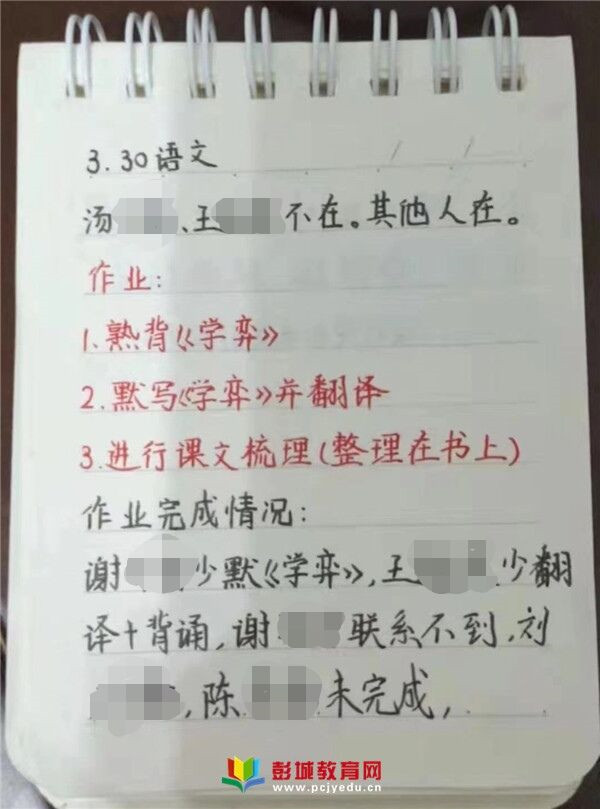 3.30语文
汤、王不在。其他人在。
作业:
1.熟背《学弈》
2.默写《学弈》并翻译
3.进行课文梳理(整理在书上)
作业完成情况:
谢少默《学弈》,王少翻
译+背诵,谢联系不到,刘
,陈未完成,
彭城教育网
www.pcjyedu.cn